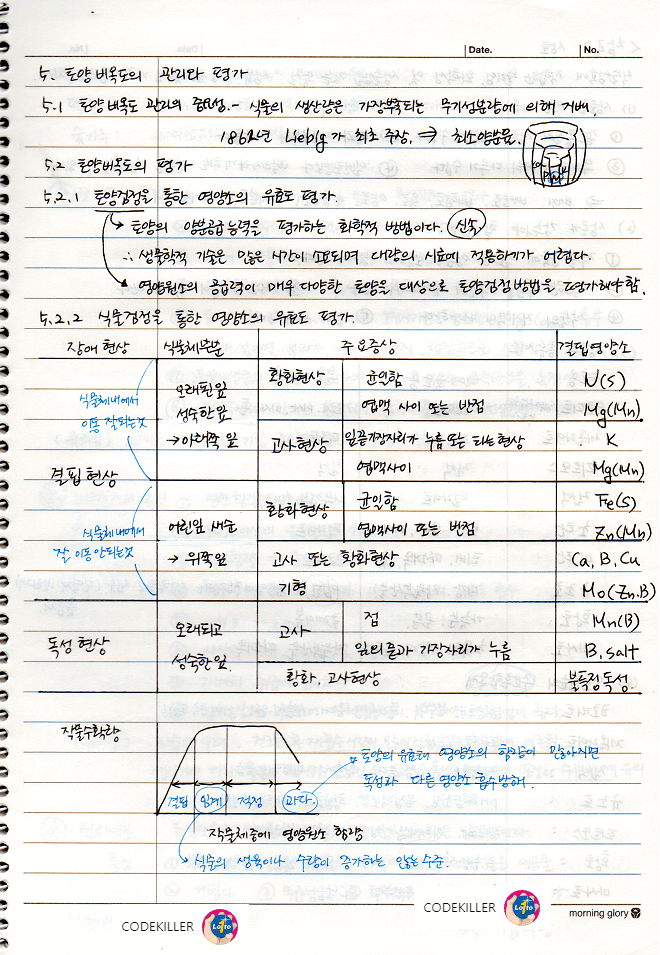 Date. No.
5. 토양 비옥도의 관리와 평가
5.1 토양비옥도 관리의 중요성. - 식물의 생산량은 가장부족되는 무기성분량에 의해 지배.
1862년 Liebig가 최초 주장. ⇒ 최소양분율.
5.2 토양비옥도의 평가
5.2.1 토양검정을 통한 영양소의 유효도 평가.
→ 토양의 양분공급능력을 평가하는 화학적 방법이다. 신속
∴ 생물학적 기술은 많은 시간이 소요되며 대량의 시료에 적용하기가 어렵다.
→ 영양원소의 공급력이 매우 다양한 토양을 대상으로 토양검정방법을 평가해야 함.
5.2.2 식물검정을 통한 영양소의 유효도 평가.
장애 현상 식물체부분 주요증상 결핍영양소
결핍현상
식물체내에서
이동 잘되는것
오래된잎
성숙한잎
→ 아래쪽 잎
황화현상 균일함 N(S)
엽맥 사이 또는 반점 Mg(Mn)
고사현상 잎끝가장자리가 누름 또는 타는현상 K
엽맥사이 Mg(Mn)
식물체내에서
잘 이동안되는것
어린잎 새순
→ 위쪽잎
황화현상 균일함 Fe(S)
엽맥사이 또는 반점 Zn(Mn)
고사 또는 황화현상 Ca, B, Cu
기형 Mo(Zn.B)
독성 현상
오래되고
성숙한잎.
고사 점 Mn(B)
잎의 끝과 가장자리가 누름 B, salt
황화, 고사현상 불특정독성.
작물수확량
결핍 임계 적정 과다.
토양의 유효태 영양소의 함량이 많아지면
독성과 다른 영양소 흡수방해.
작물체중에 영양원소 함량
→ 식물의 생육이나 수량이 증가하는 않는수준.
CODEKILLER Lotto 1
CODEKILLER Lotto 1
morning glory